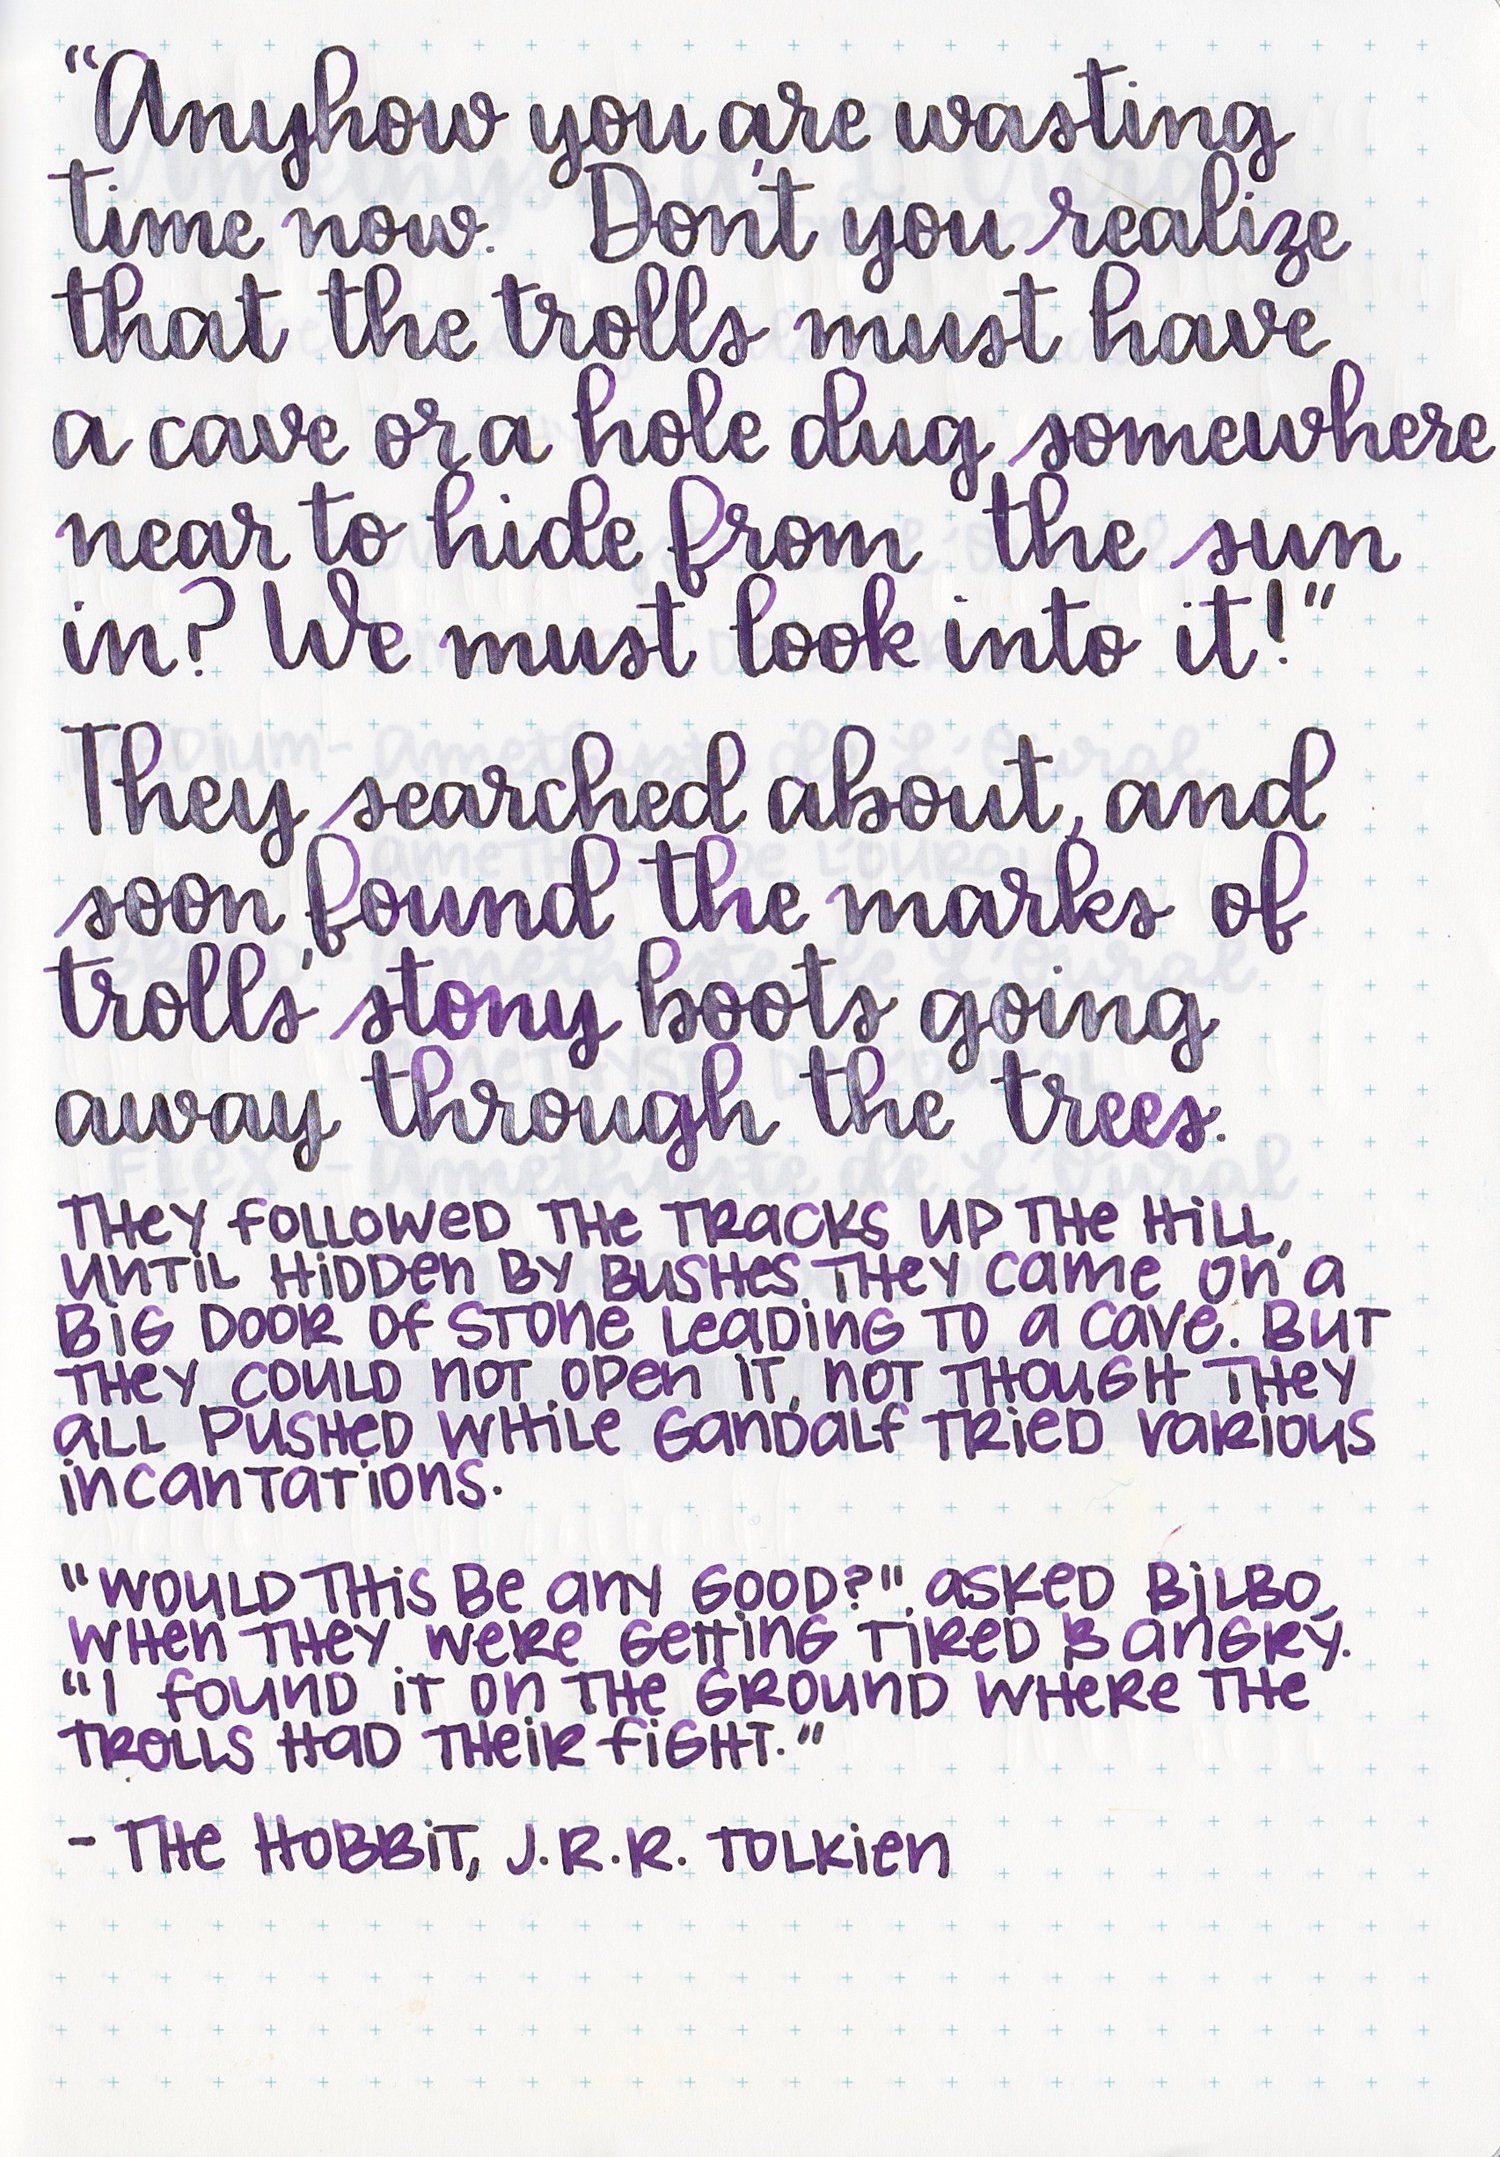 “Anyhow you are wasting
time now. Don't you realize
that the trolls must have
a cave or a hole dug somewhere
near to hide from the sun
in? We must look into it!"
They searched about, and
soon found the marks of
trolls' stony boots going
away through the trees.
They followed the tracks up the hill,
until hidden by bushes they came on a
big door of stone leading to a cave. But
they could not open it, not though they
all pushed while Gandalf tried various
incantations.
"Would this be any good?" asked Bilbo,
when they were getting tired & angry.
"I found it on the ground where the
trolls had their fight."
- The Hobbit, J.R.R. Tolkien